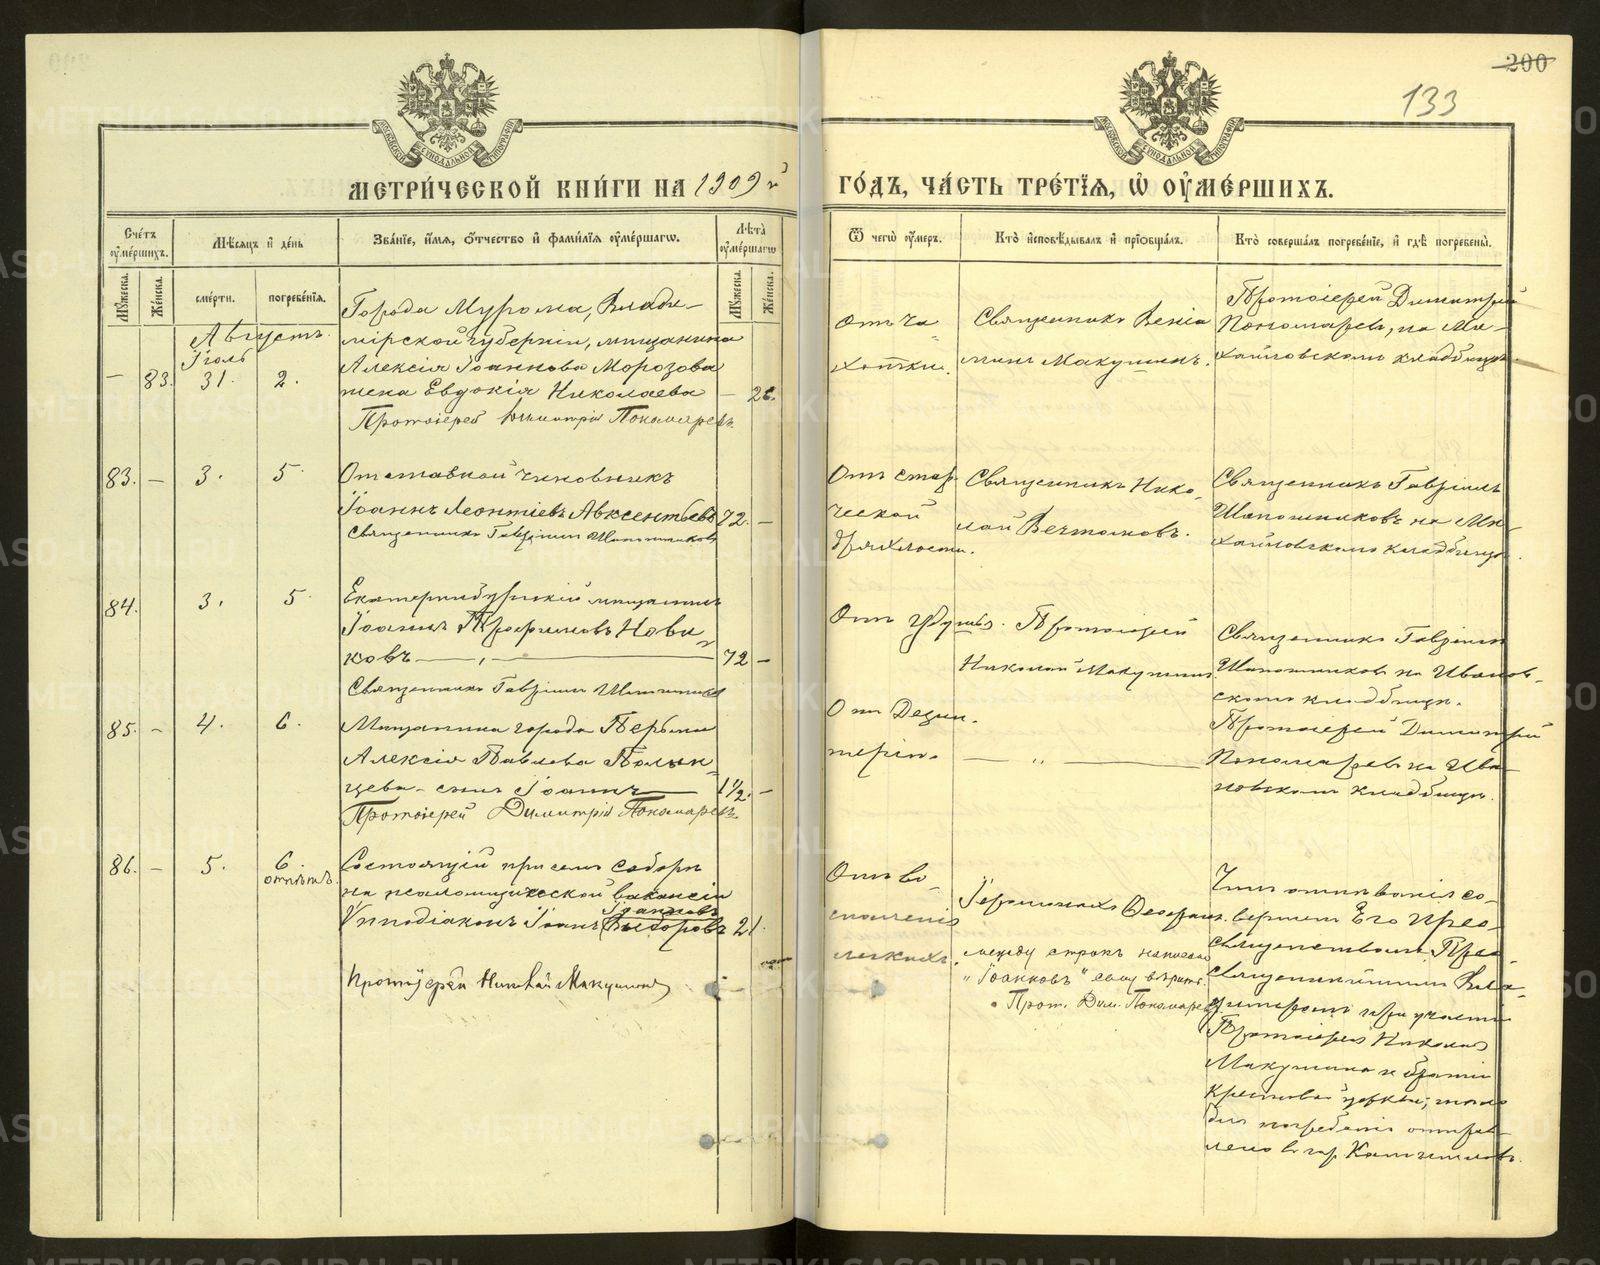 200
133
МОСКОВСКОЙ СѴНОДАЛЬНОЙ ТИПОГРАФІИ
МОСКОВСКОЙ СѴНОДАЛЬНОЙ ТИПОГРАФІИ
МЕТРИ́ЧЕСКОЙ КНИ́ГИ НА 1909 й
ГО́ДЪ, ЧА́СТЬ ТРЕ́ТЇѦ, Ѡ҆ ОУ҆МЕ́РШИХЪ.
Сче́тъ оу҆ме́ршихъ.
Мѣ́сѧцъ и҆ де́нь
Зва́нїе, и҆́мѧ, ѻ҆́тчество и҆ фами́лїѧ оу҆ме́ршагѡ.
Лѣ́та оу҆ме́ршагѡ
Ѿ чегѡ̀ оу҆́меръ.
Кто̀ и҆сповѣ́дывалъ и҆ прїѻбща́лъ.
Кто̀ соверша́лъ погребе́нїе, и҆ гдѣ̀ погребены̀.
Мꙋ́жеска.
Же́нска.
сме́рти.
погребе́нїѧ.
Мꙋ́жеска.
Же́нска.
Августъ.
Іюль
— 83. 31. 2.
Города Мурома, Влади-
мірской губерніи, мѣщанина
Алексія Іоаннова Морозова
жена Евдокія Николаева — 26.
Протоіерей Димитрій Пономаревъ.
Отъ ча-
хотки.
Священникъ Веніа
минъ Макушинъ.
Протоіерей Димитрій
Пономаревъ, на Ми-
хайловскомъ кладбищѣ.
83. — 3. 5.
Отставной чиновникъ
Іоаннъ Леонтіевъ Авксентьевъ 72. —
Священникъ Гавріилъ Шапошниковъ
Отъ стар-
ческой
дряхлости.
Священникъ Нико-
лай Вечтомовъ.
Священникъ Гавріилъ
Шапошниковъ на Ми-
хайловскомъ кладбищѣ.
84. 3. 5.
Екатеринбургскій мѣщанинъ
Іоаннъ Трофимовъ Нови-
ковъ 72 —
Священникъ Гавріилъ Шапошниковъ
Протоіерей
Николай Макушинъ.
Священникъ Гавріилъ
Шапошниковъ на Иванов-
скомъ кладбищѣ.
85. — 4. 6.
Мѣщанина города Перми
Алексія Павлова
сынъ Іоаннъ 1½. —
Протоіерей Димитрій Пономаревъ.
От Дезин-
теріи.
— „ —
Протоіерей Димитрій
Пономаревъ на Ива-
новскомъ кладбищѣ.
86. — 5. 6. отпѣтъ
Состоящій при семъ соборѣ
на псаломщической вакансіи
Іоанновъ
Упподіаконъ Іоаннъ Выборовъ 21.
Протоіерей Николай Макушинъ
Отъ во-
спаленія
легкихъ.
Іеромонахъ
между строкъ написано
„Іоанновъ" сему вѣрить.
Прот. Дим. Пономаревъ
Чинъ отпѣванія со-
вершенъ Его Прео-
священствомъ Прео-
священнѣйшимъ Вла-
диміромъ при участіи
Протоіерея Николая
Макушина и братіи
Крестовой церкви; тѣло
для погребенія отправ-
лено въ гор. Камышловъ.